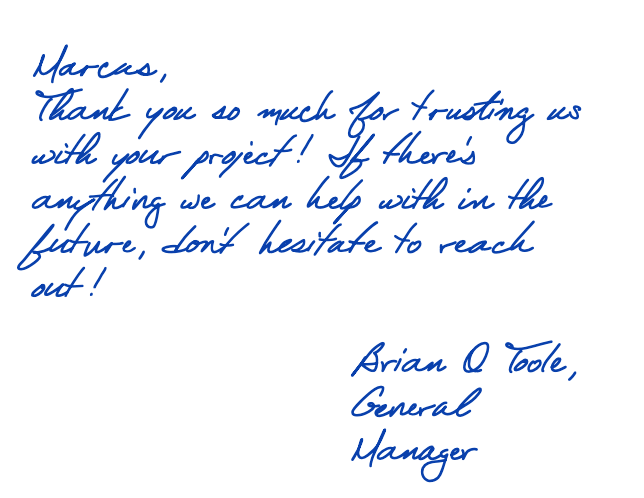 Marcus,
Thank you so much for trusting us
with your project! If there's
anything we can help with in the
future, don't hesitate to reach
out!
Brian O Toole,
General
Manager